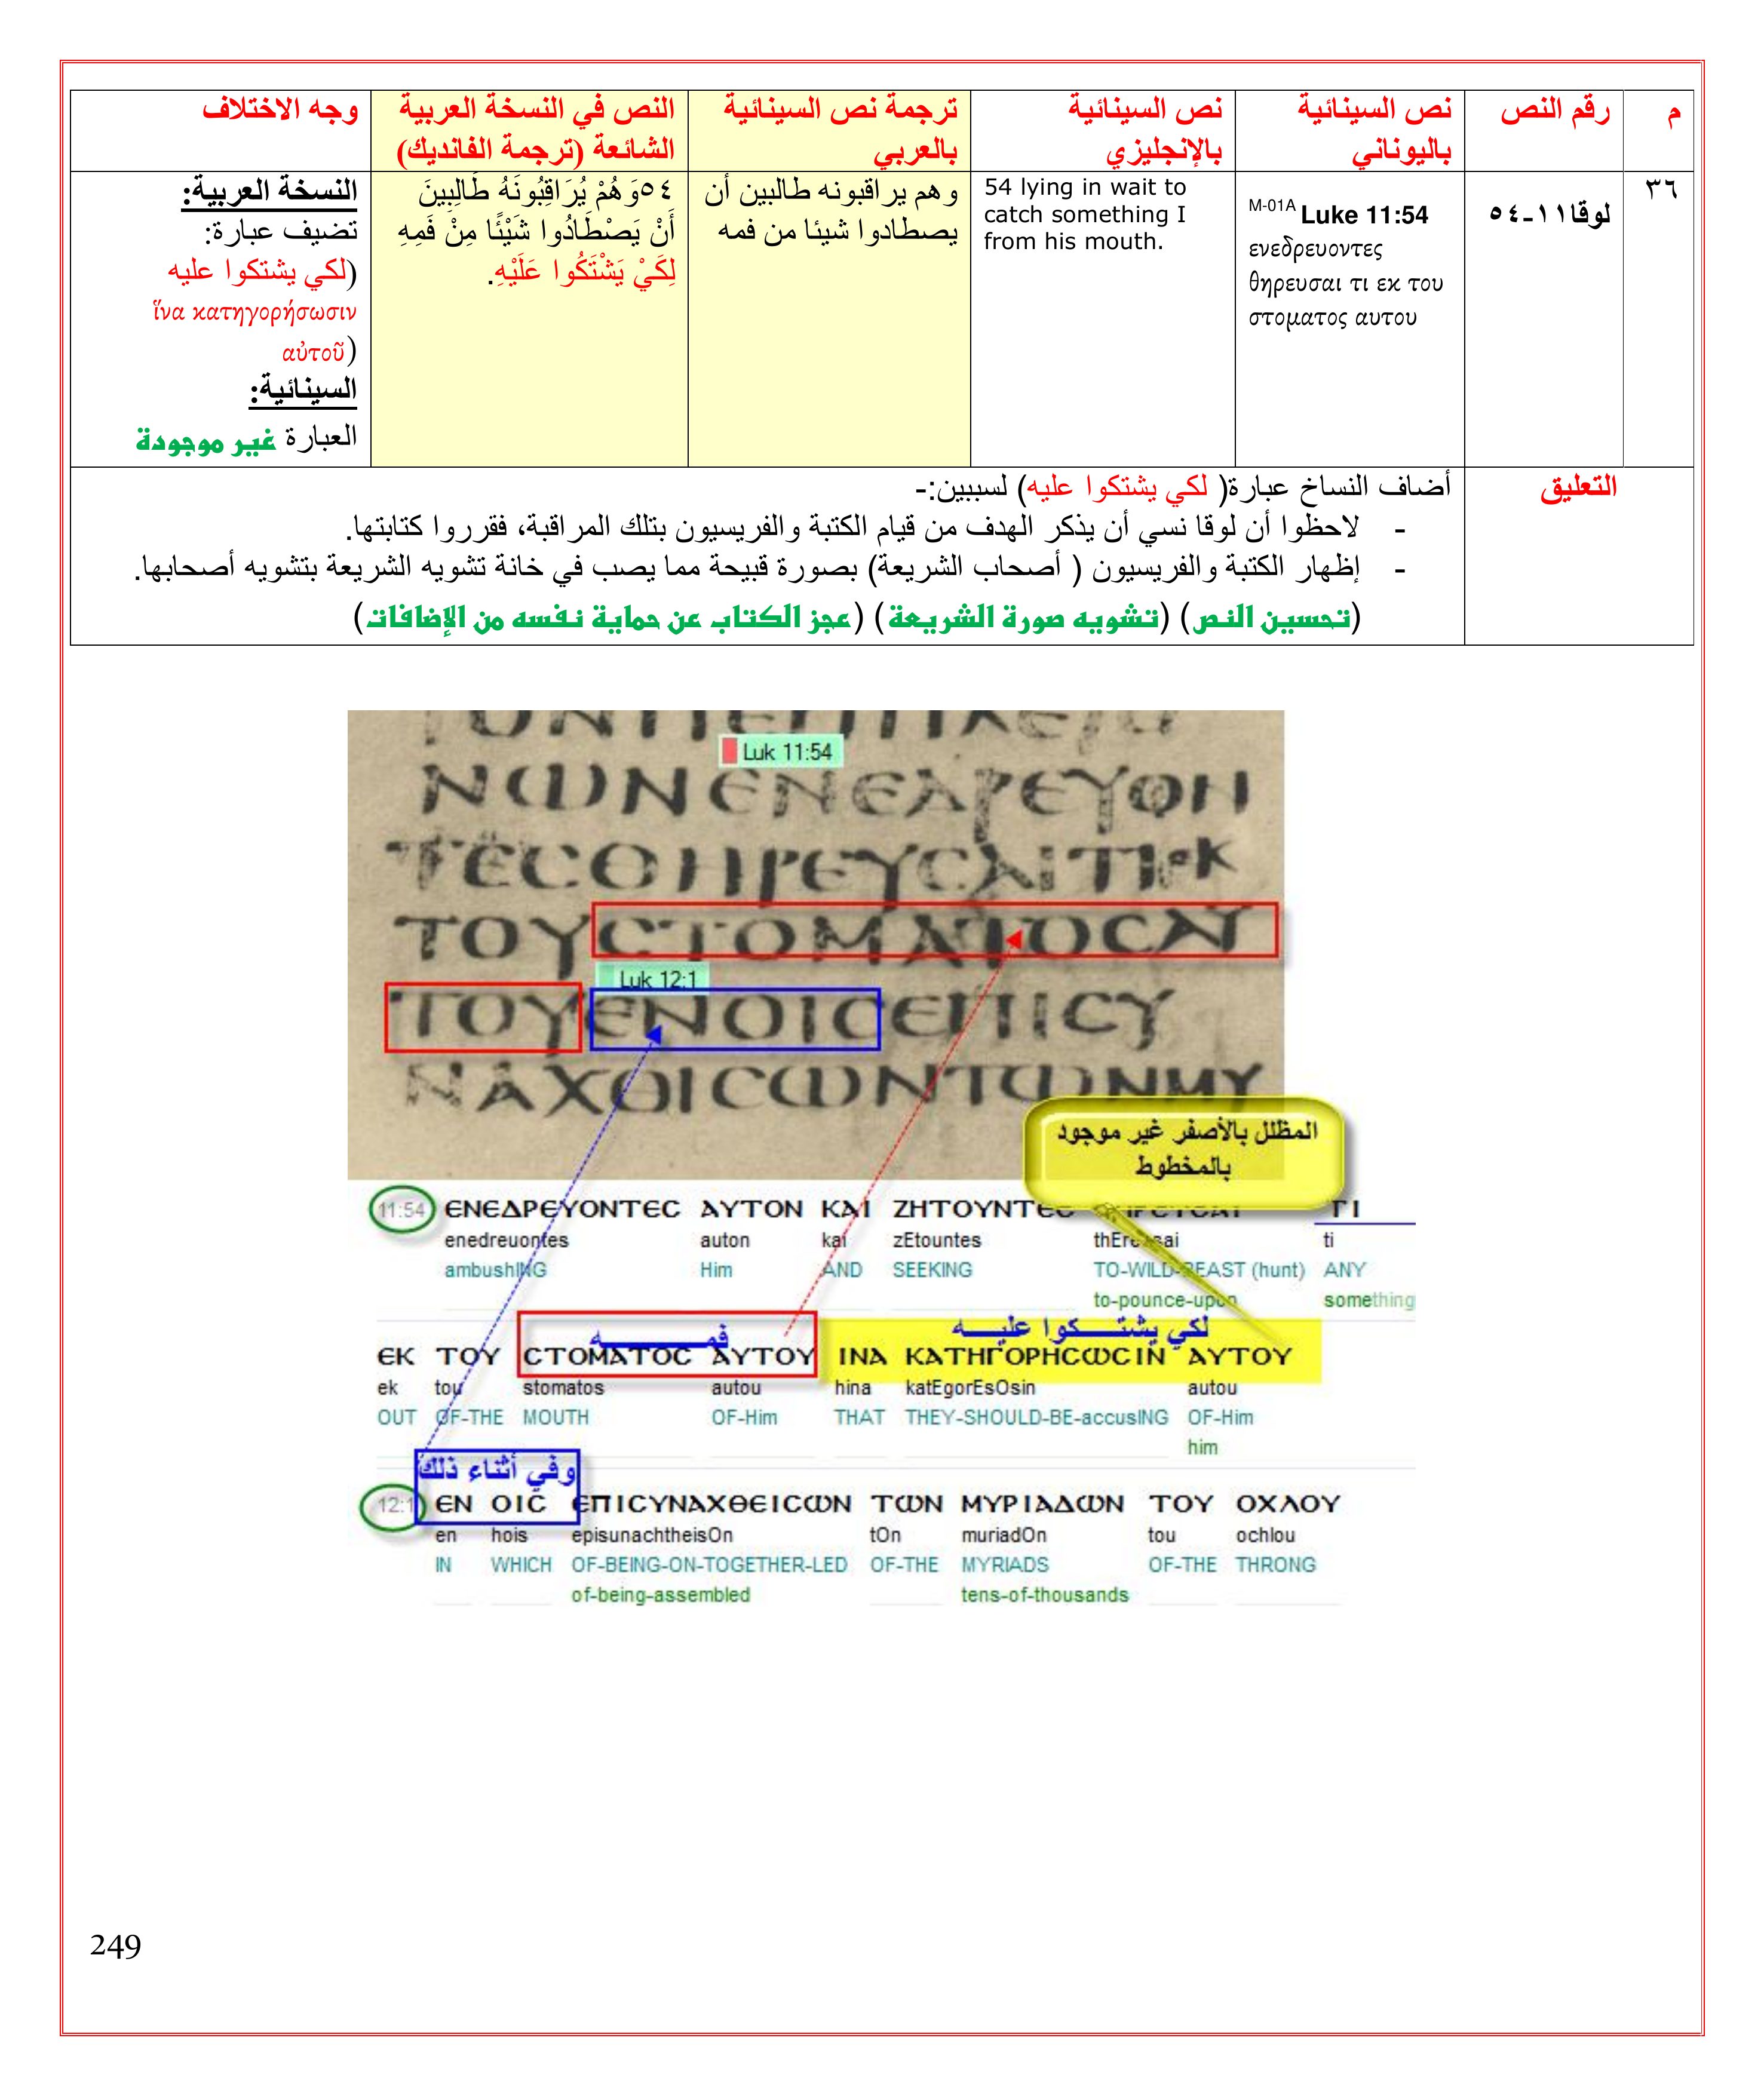 م
رقم النص
نص السينائية
باليوناني
نص السينائية
بالإنجليزي
ترجمة نص السينائية
بالعربي
النص في النسخة العربية
الشائعة (ترجمة الفانديك)
وجه الاختلاف
٣٦
لوقا١١-٥٤
M-01A Luke 11:54
ενεδρευοντες
θηρευσαι τι εκ του
στοματος αυτου
54 lying in wait to
catch something I
from his mouth.
وهم يراقبونه طالبين أن
يصطادوا شيئا من فمه
٥٤وَهُمْ يُرَاقِبُونَهُ طَالِبِينَ
أَنْ يَصْطَادُوا شَيْئًا مِنْ فَمِهِ
لِكَيْ يَشْتَكُوا عَلَيْهِ.
النسخة العربية:
تضيف عبارة:
(لكي يشتكوا عليه
ἵνα κατηγορήσωσιν
αὐτοῦ)
السينائية:
العبارة غير موجودة
التعليق
أضاف النساخ عبارة( لكي يشتكوا عليه) لسببين:-
- لاحظوا أن لوقا نسي أن يذكر الهدف من قيام الكتبة والفريسيون بتلك المراقبة، فقرروا كتابتها.
- إظهار الكتبة والفريسيون ( أصحاب الشريعة) بصورة قبيحة مما يصب في خانة تشويه الشريعة بتشويه أصحابها.
(تحسين النص) (تشويه صورة الشريعة) (عجز الكتاب عن حماية نفسه من الإضافات)
Luk 11:54
ΝΩΝΕΝΕΔΡΕΥΟΝ
ΤΕCΘΗΡΕΥCΑΙΤΙΕΚ
ΤΟΥCΤΟΜΑΤΟCΑΥ
Luk 12:1
ΤΟΥΕΝΟΙCΕΠΙCΥ
ΝΑΧΘΙCΩΝΤΩΝΜΥ
المظلل بالأصفر غير موجود
بالمخطوط
11:54 ΕΝΕΔΡΕΥΟΝΤΕC ΑΥΤΟΝ ΚΑΙ ΖΗΤΟΥΝΤΕC ΘΗΡΕΥCΑΙ ΤΙ
enedreuontes auton kai zEtountes thEreusai ti
ambushING Him AND SEEKING TO-WILD-BEAST (hunt) ANY
to-pounce-upon something
فمـــه لكي يشتـــكوا عليـــه
ΕΚ ΤΟΥ CΤΟΜΑΤΟC ΑΥΤΟΥ ΙΝΑ ΚΑΤΗΓΟΡΗCΩCΙΝ ΑΥΤΟΥ
ek tou stomatos autou hina katEgorEsOsin autou
OUT OF-THE MOUTH OF-Him THAT THEY-SHOULD-BE-accusING OF-Him
him
وفي أثناء ذلك
12:1 ΕΝ ΟΙC ΕΠΙCΥΝΑΧΘΕΙCΩΝ ΤΩΝ ΜΥΡΙΑΔΩΝ ΤΟΥ ΟΧΛΟΥ
en hois episunachtheisOn tOn muriadOn tou ochlou
IN WHICH OF-BEING-ON-TOGETHER-LED OF-THE MYRIADS OF-THE THRONG
of-being-assembled tens-of-thousands
249